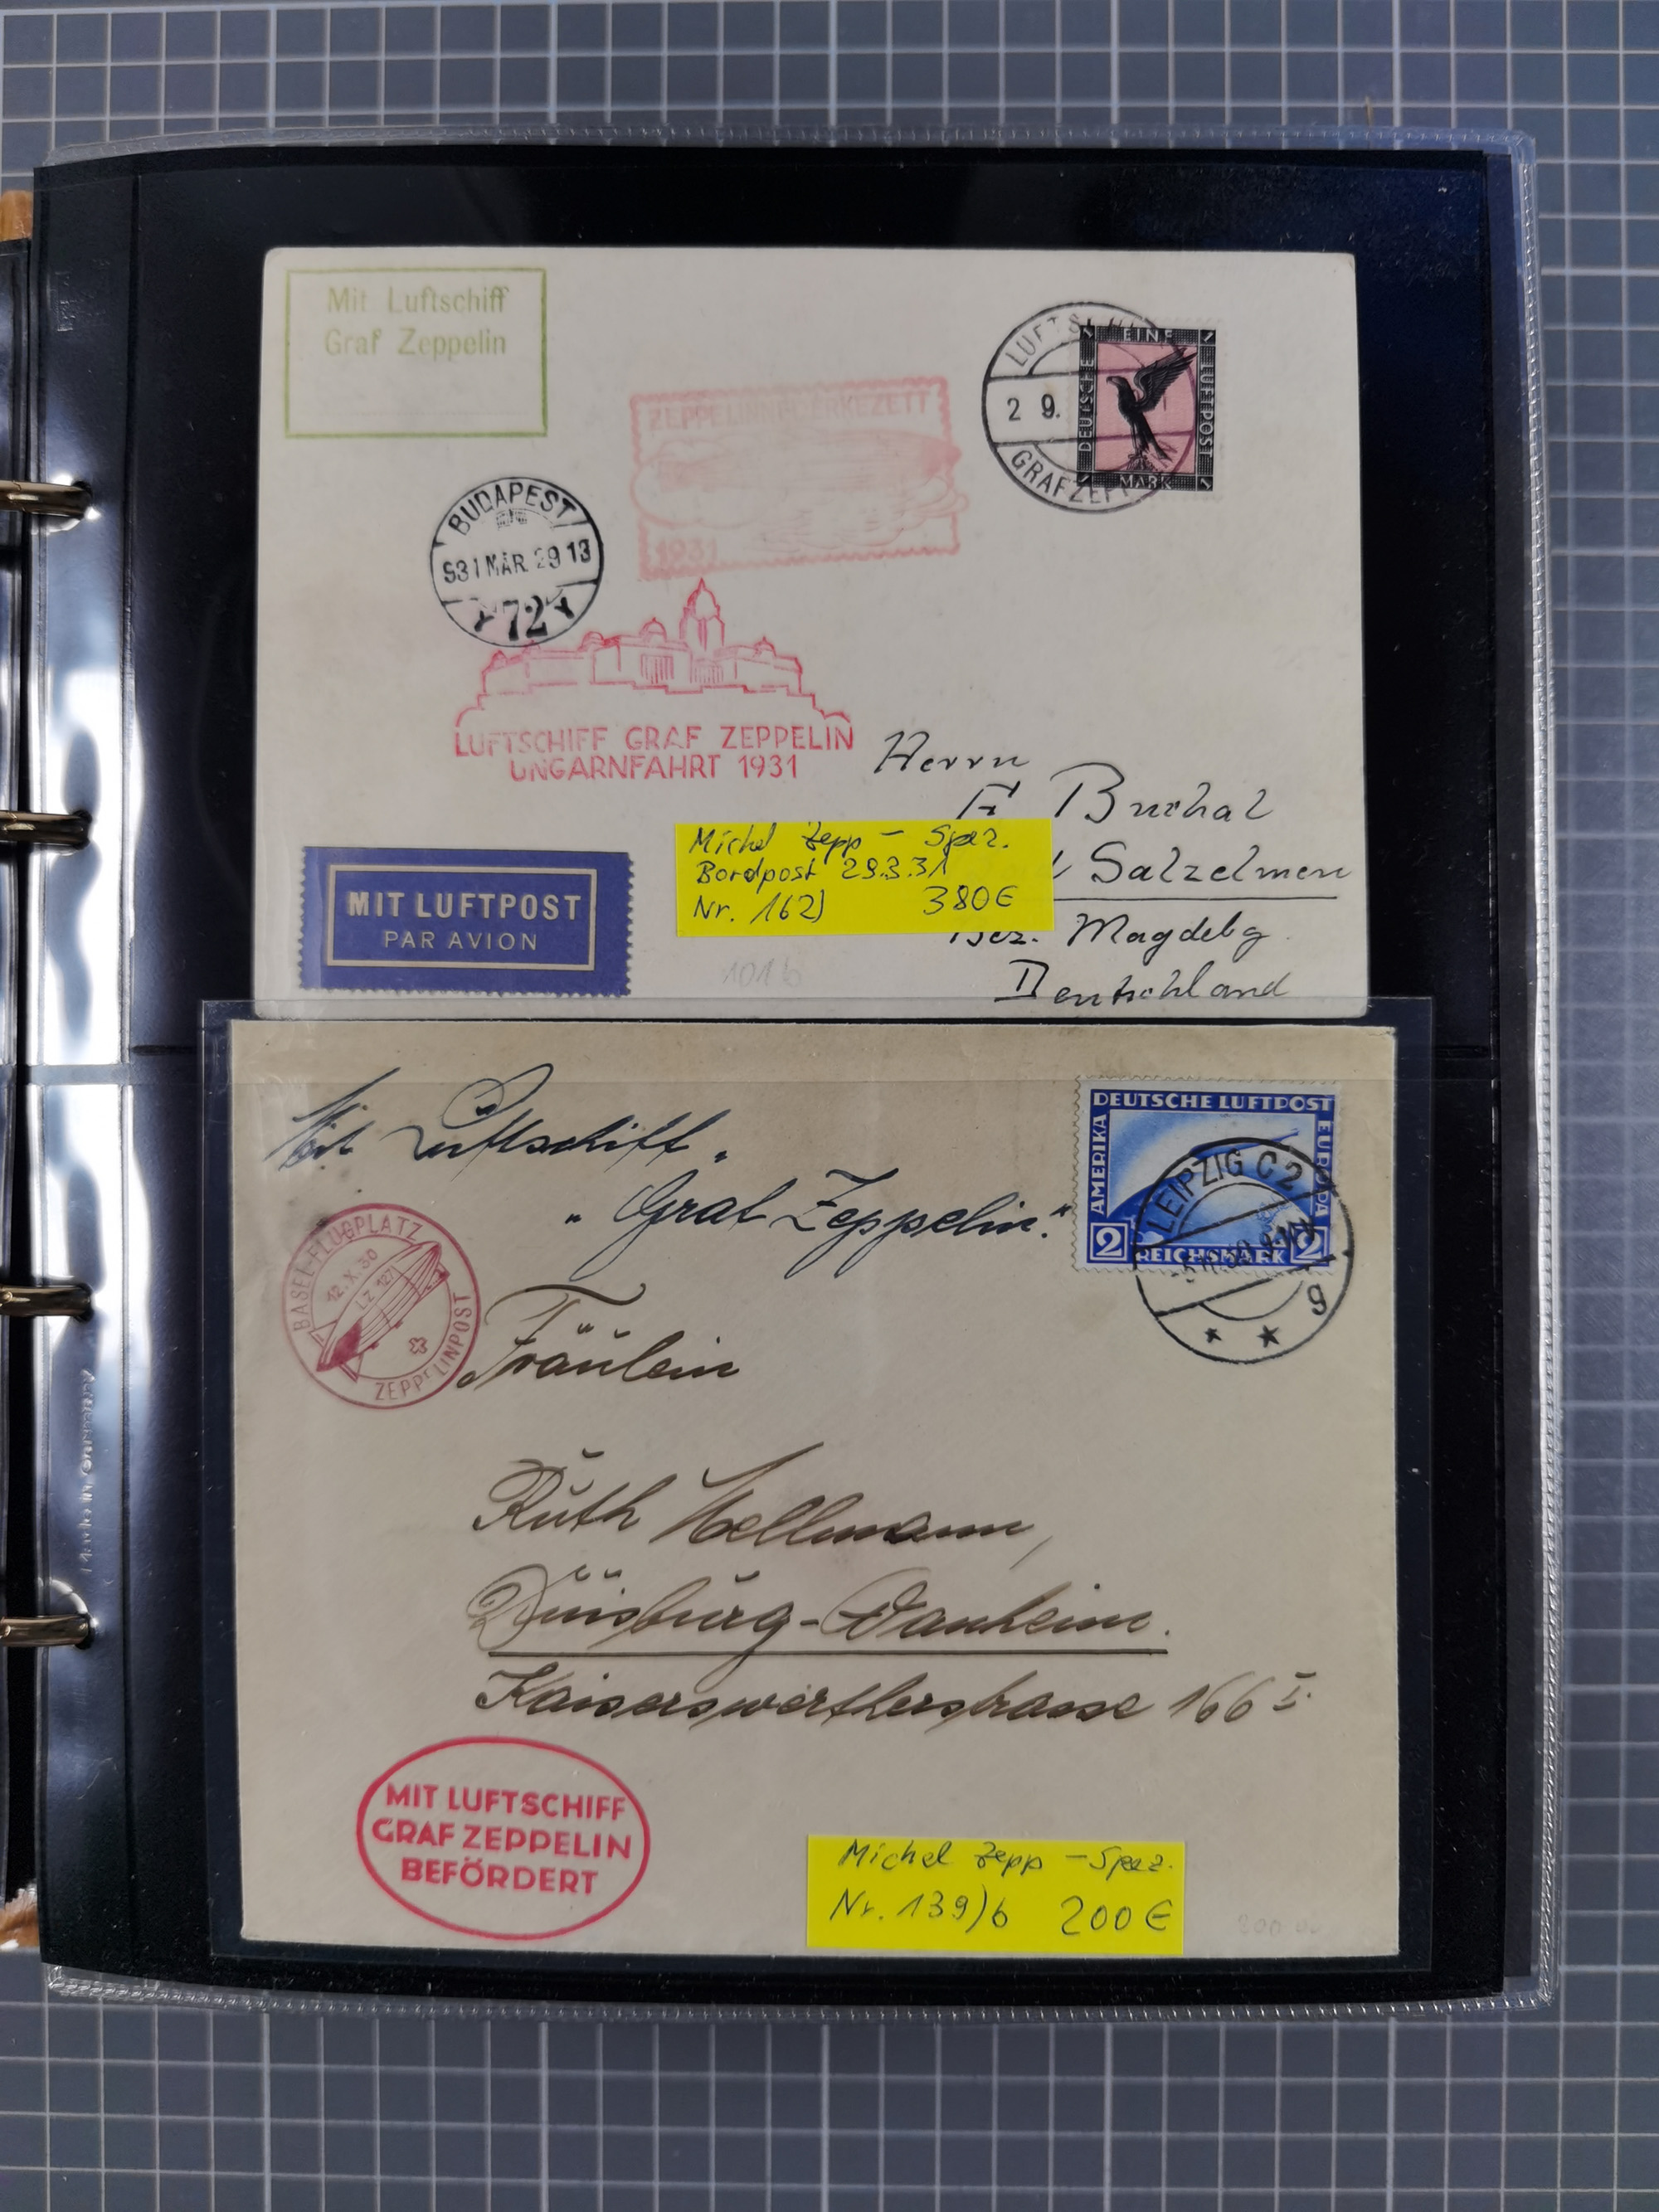 Mit Luftschiff
Graf Zeppelin
1931
LUFTSCHIFF
2 9.
GRAF ZEPPELIN
EINE
DEUTSCHE
LUFTPOST
MARK
BUDAPEST
931 MÁR. 29 13
72
LUFTSCHIFF GRAF ZEPPELIN
UNGARNFAHRT 1931
Herrn
Buchal
Salzelmen
Bez. Magdebg.
Deutschland
Michel Zepp - Spez.
Bordpost 29.3.31
Nr. 162) 380€
MIT LUFTPOST
PAR AVION
101 b
Mit Luftschiff
"Graf Zeppelin."
DEUTSCHE LUFTPOST
AMERIKA
EUROPA
2 REICHSMARK 2
LEIPZIG C 2
g
BASEL-FLUGPLATZ
12.X.30
LZ 127
ZEPPELINPOST
Fräulein
Ruth Hellmann,
Duisburg-Wanheim.
Kaiserswertherstrasse 166 I.
MIT LUFTSCHIFF
GRAF ZEPPELIN
BEFÖRDERT
Michel Zepp - Spez.
Nr. 139)b 200€
Made in Germany